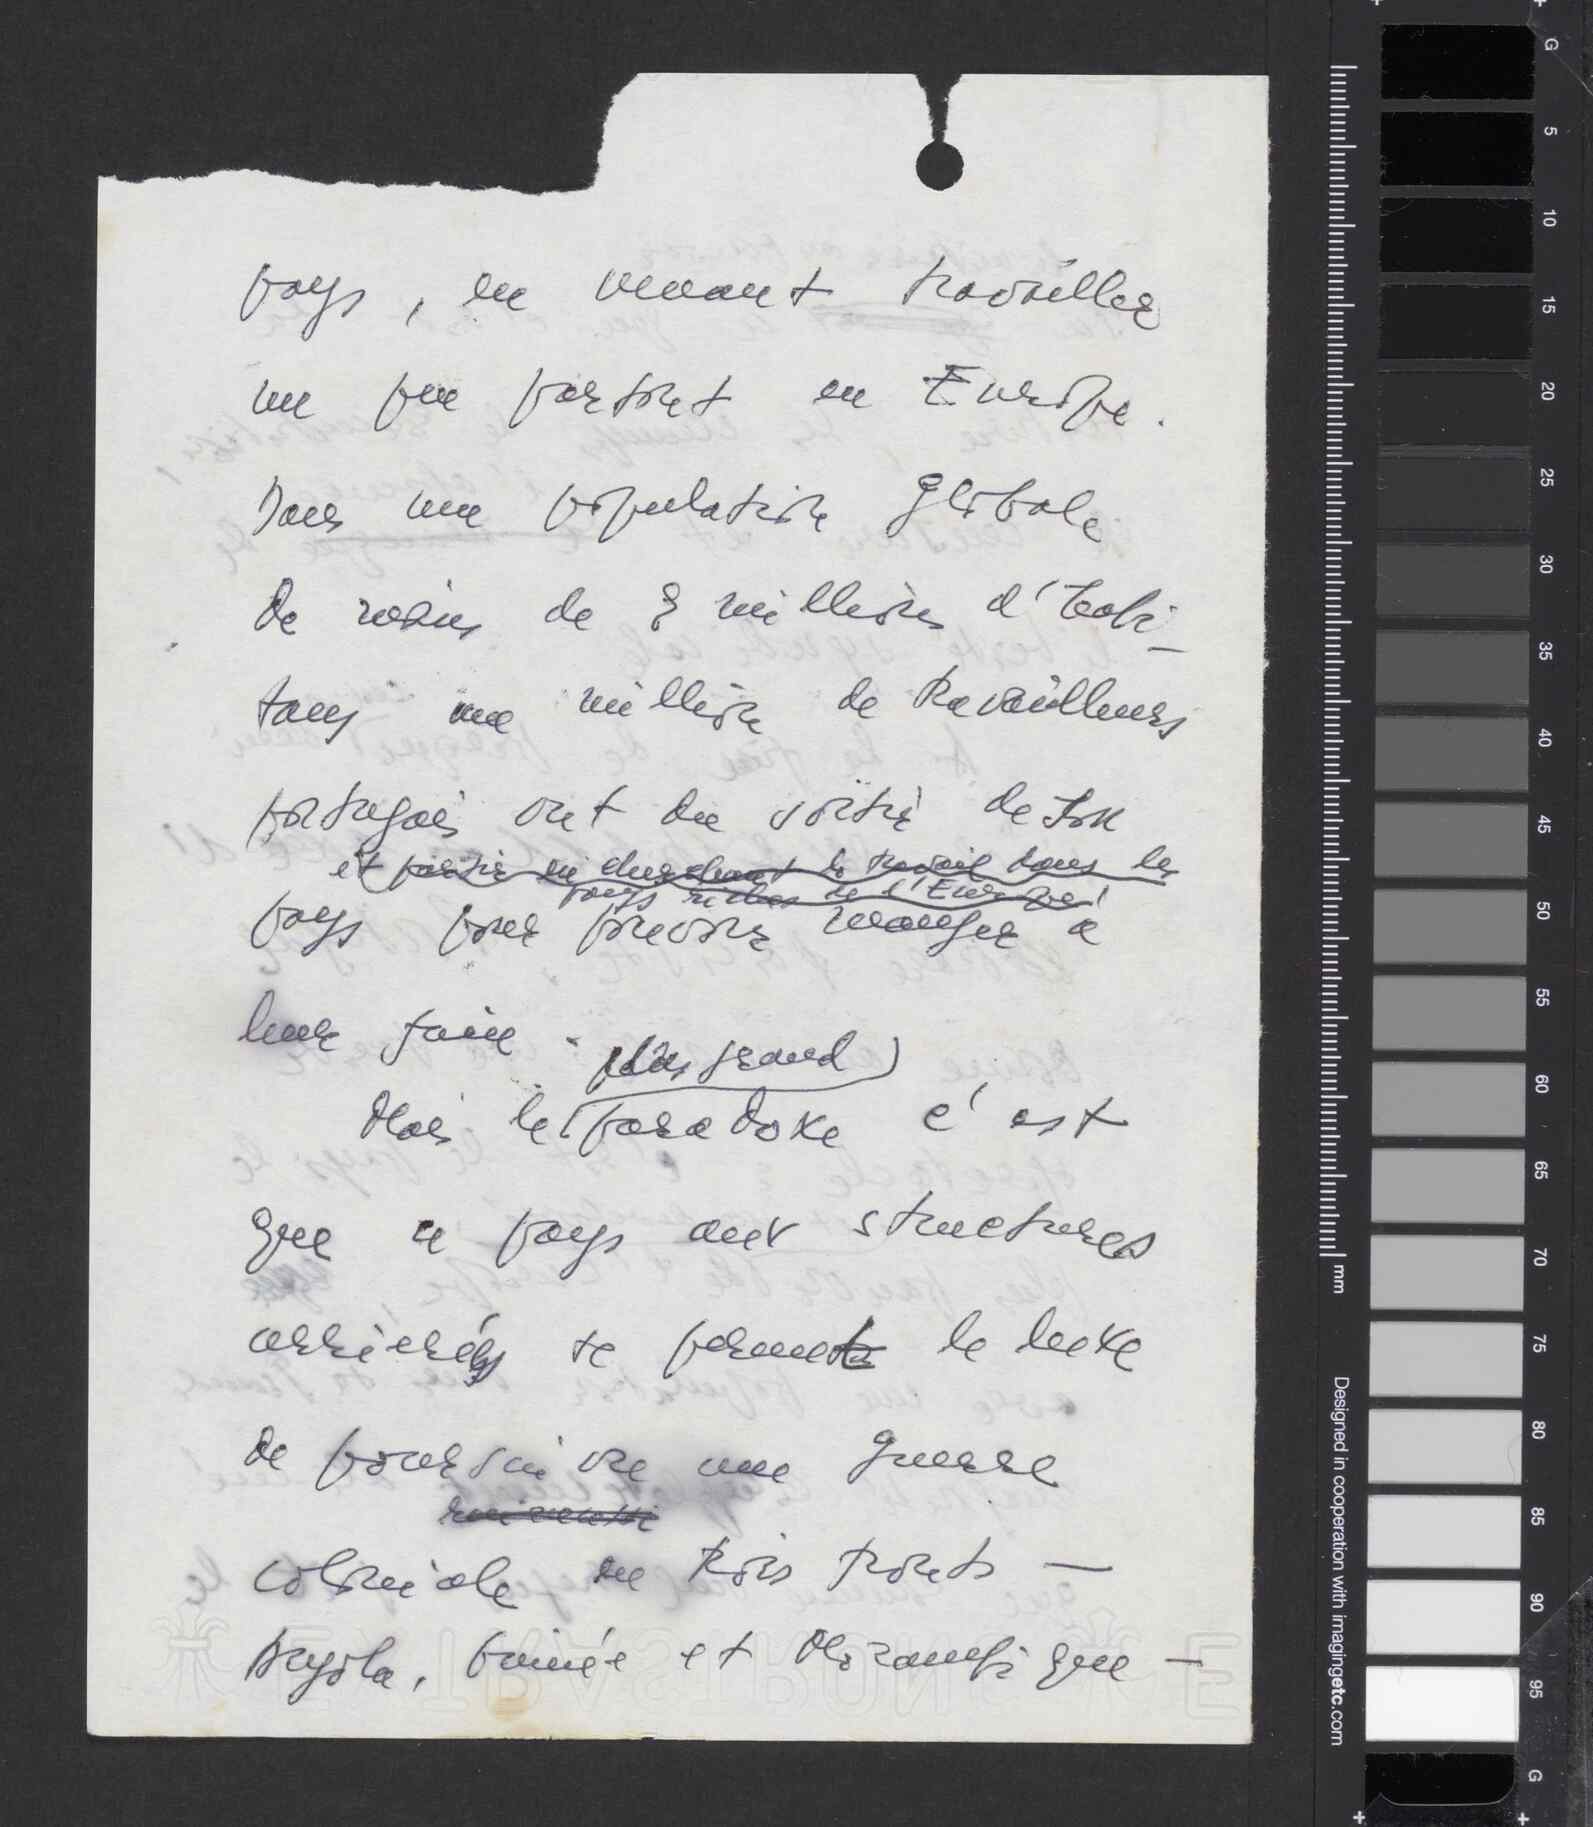 pays, en venant travailler
un peu partout en Europe.
Dans une population globale
de moins de 8 millions d'habi-
tans un million de travailleurs
portugais ont du sortir de son
et partir en cherchant de travail dans les
pays riches de l'Europe
pays pour pouvoir manger à
leur faim.
plus grand
Mais le paradoxe c'est
que ce pays aux structures
arriérées se permet le luxe
de poursuivre une guerre
coloniale en trois fronts —
Angola, Guinée et Mozambique —
G
5
10
15
20
25
30
35
40
45
50
55
60
65
70
75
80
85
90
95
G
mm
Designed in cooperation with imagingetc.com